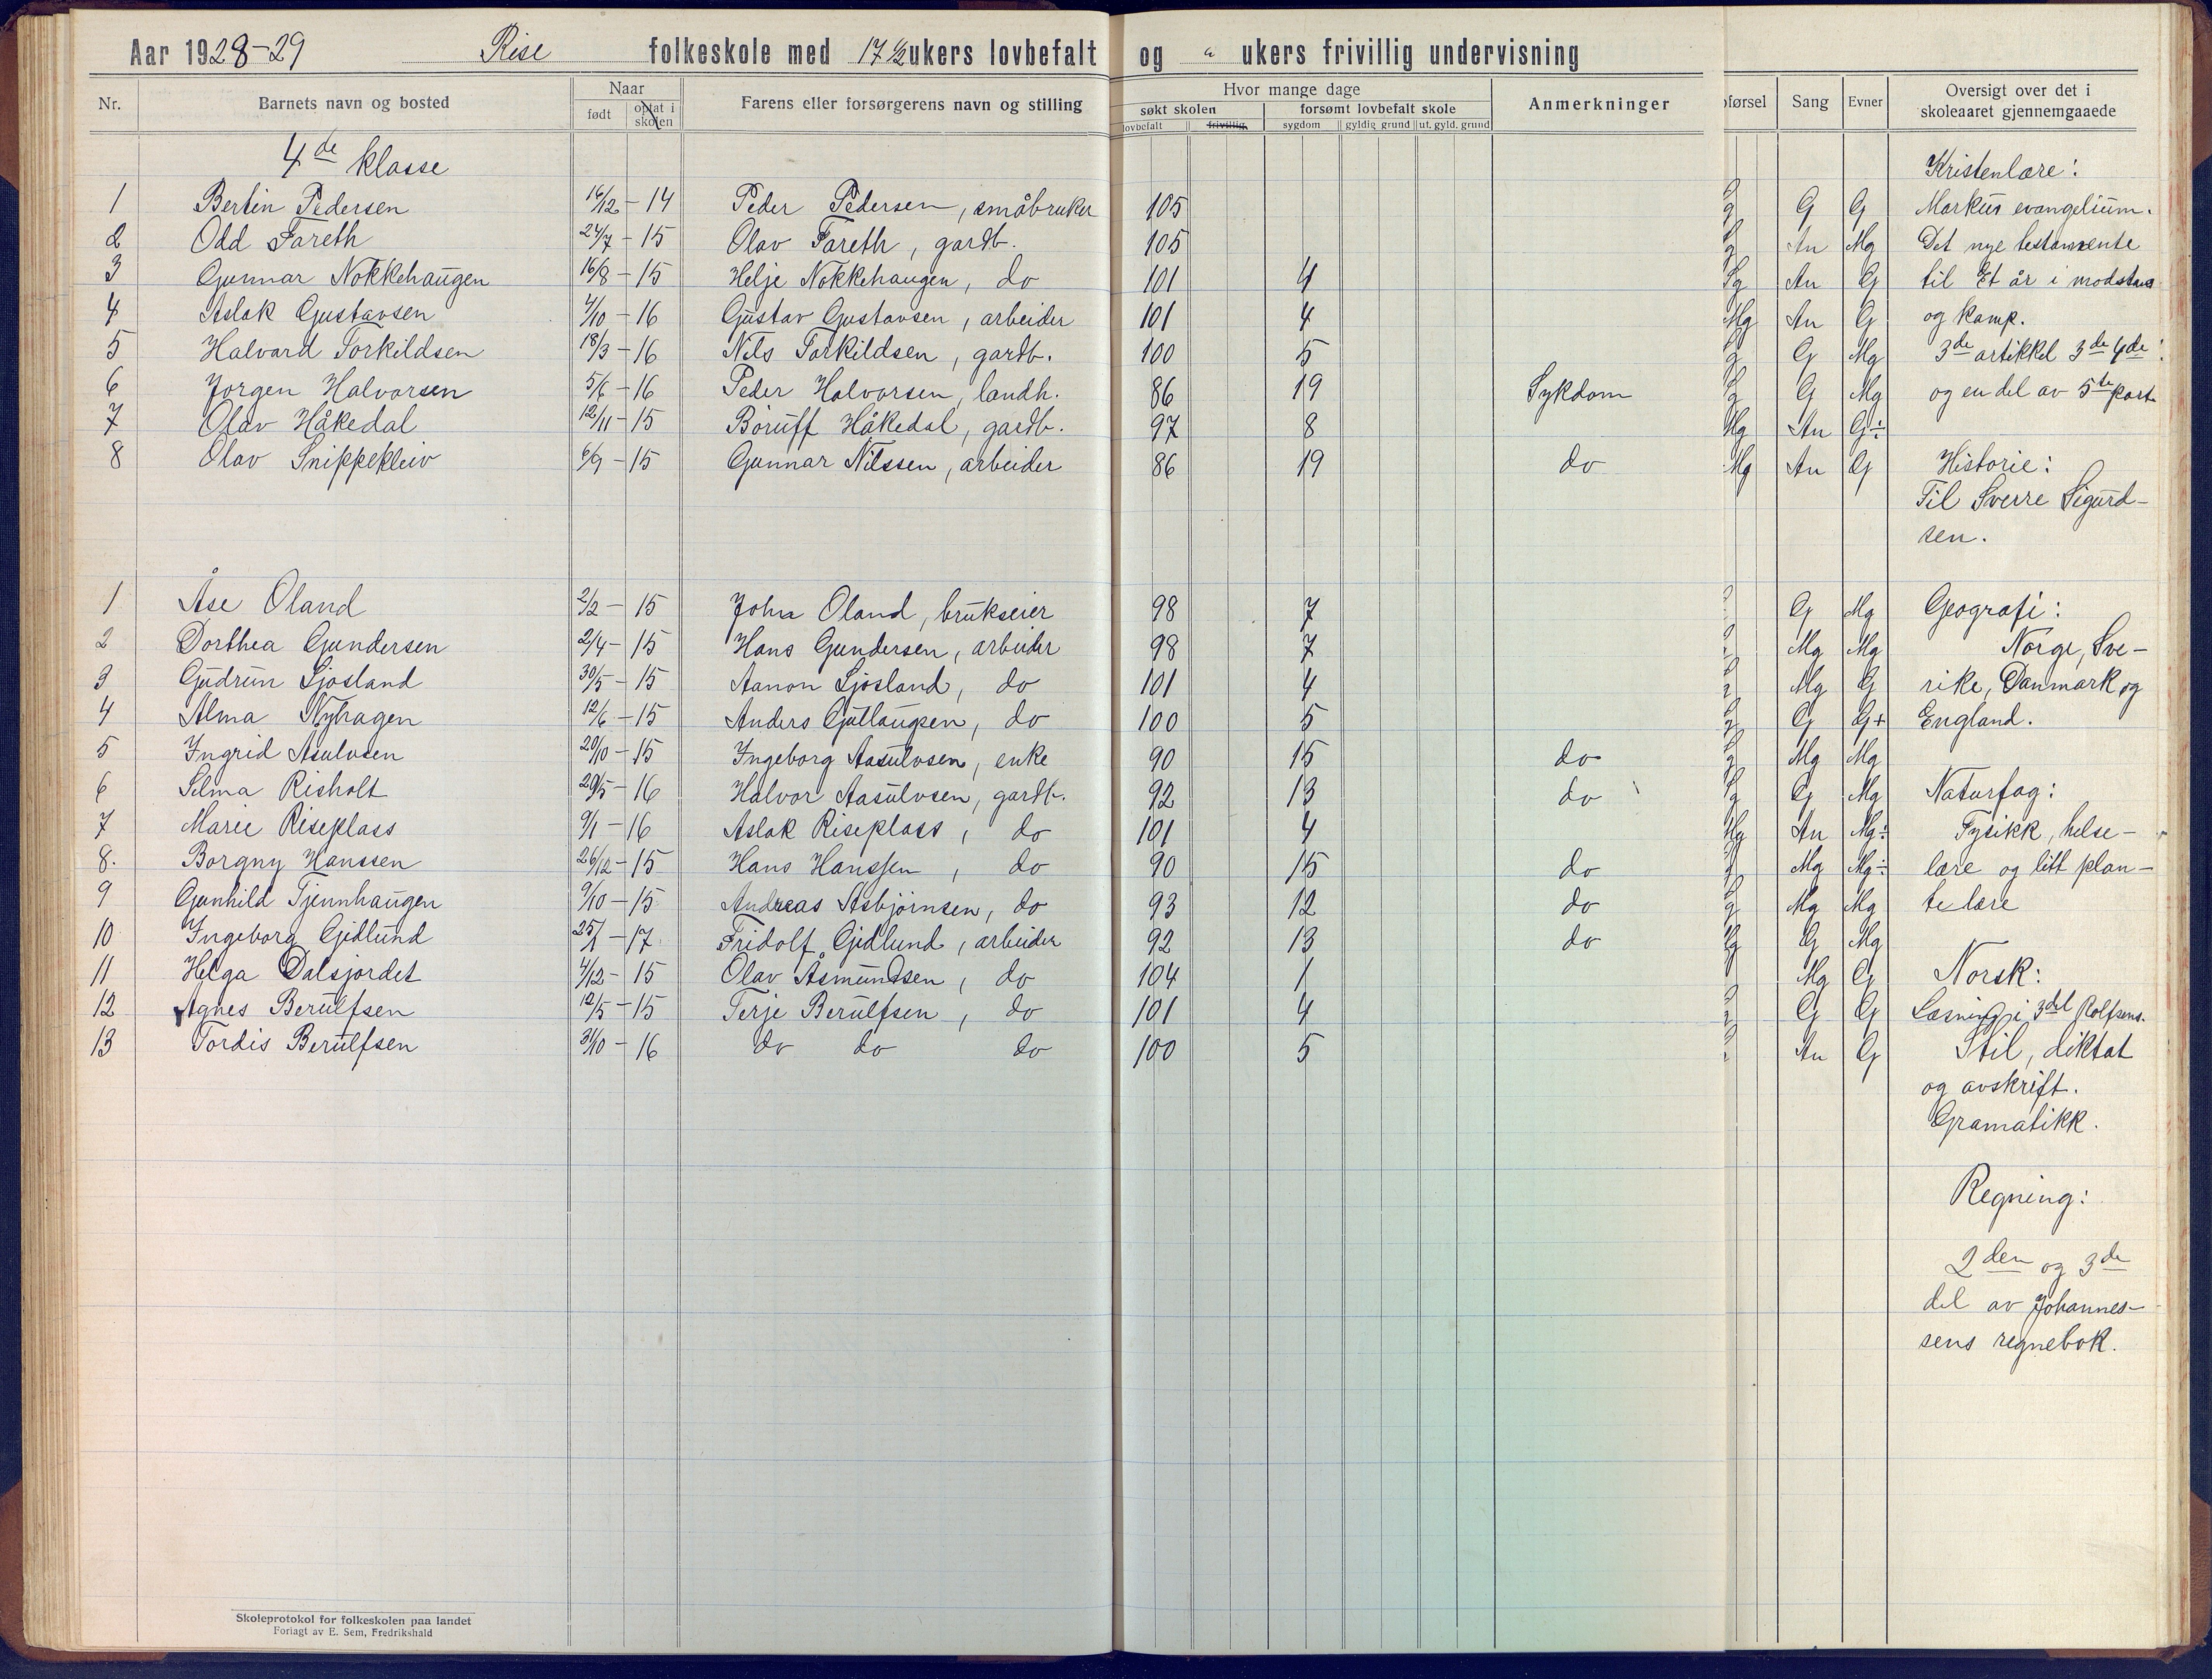 Aar 1928-29 Rise folkeskole med 17 1/2 ukers lovbefalt og " ukers frivillig undervisning
Nr. Barnets navn og bosted Naar født optat i skolen Farens eller forsørgerens navn og stilling Hvor mange dage søkt skolen lovbefalt frivillig forsømt lovbefalt skole sygdom gyldig grund ut. gyld. grund Anmerkninger førsel Sang Evner Oversigt over det i skoleaaret gjennemgaaede
4de klasse Kristenlære:
1 Bertin Pedersen 16/12-14 Peder Pedersen, småbruker 105 G G Markus evangelium.
2 Odd Fareth 24/7-15 Olav Fareth, gardb. 105 An Mg Det nye testamente
3 Gunnar Nokkehaugen 16/8-15 Helje Nokkehaugen, do 101 4 Sg An G til Et år i
4 Aslak Gustavsen 4/10-16 Gustav Gustavsen, arbeider 101 4 Mg An G og kamp.
5 Halvard Torkildsen 18/3-16 Nils Torkildsen, gardb. 100 5 G Mg 3de artikkel 3de 4de
6 Jorgen Halvorsen 5/6-16 Peder Halvorsen, landh. 86 19 Sykdom G Mg og en del av 5te part
7 Olav Håkedal 12/11-15 Håkedal, gardb. 97 8 Mg An G÷
8 Olav Snippekleiv 6/9-15 Gunnar Nilssen, arbeider 86 19 do Mg An G Historie:
Til Sverre Sigurd-
sen.
1 Åse Oland 2/2-15 John Oland, brukseier 98 7 G Mg Geografi:
2 Dorthea Gundersen 2/4-15 Hans Gundersen, arbeider 98 7 Mg Mg Norge, Sve-
3 Gudrun Ljosland 30/5-15 Aanon Ljosland, do 101 4 Mg G rike, Danmark og
4 Alma Nyhagen 12/6-15 Anders do 100 5 G G+ England.
5 Ingrid Asulvsen 20/10-15 Ingeborg Aasulvsen, enke 90 15 do Mg Mg
6 Selma Risholt 29/5-16 Halvor Aasulvsen, gardb. 92 13 do G Mg Naturfag:
7 Marie Riseplass 9/1-16 Aslak Riseplass, do 101 4 Mg An Mg÷ Fysikk, helse-
8. Borgny Hanssen 26/12-15 Hans Hanssen, do 90 15 do Mg Mg÷ lære og litt plan-
9 Gunhild Tjennhaugen 9/10-15 Andreas Asbjørnsen, do 93 12 do Mg Mg telære
10 Ingeborg Gjedlund 25/1-17 Fridolf Gjedlund, arbeider 92 13 do G Mg
11 Helga Dalsjordet 4/12-15 Olav Åsmundsen, do 104 1 Mg G Norsk:
12 Agnes Berulfsen 12/5-15 Terje Berulfsen, do 101 4 G G Læsning i 3del Rolfsens.
13 Tordis Berulfsen 31/10-16 do do do 100 5 An G Stil, diktat
og avskrift.
Gramatikk.
Regning:
2den og 3de
del av Johannes-
sens regnebok.
Skoleprotokol for folkeskolen paa landet
Forlagt av E. Sem, Fredrikshald